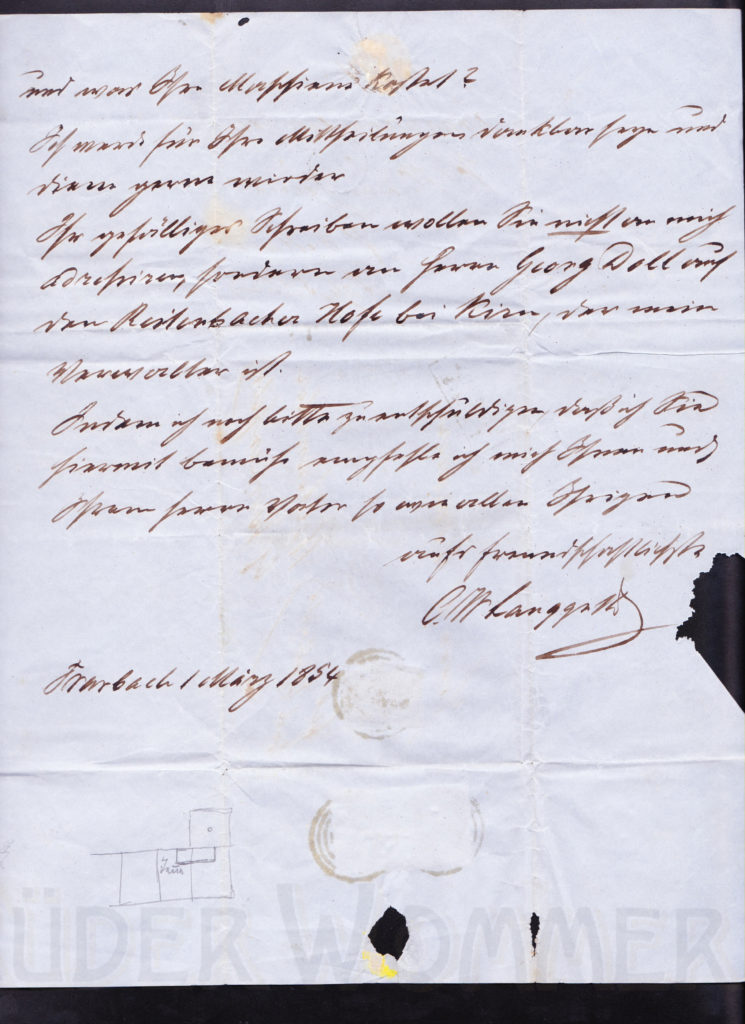 und was Ihre Maschiene kostet?
Ich werde für Ihre Mittheilungen dankbar seyn und
diene gerne wieder
Ihr gefälliges Schreiben wollen Sie nicht an mich
adressiren, sondern an Herrn Georg Doll auf
den Reidenbacher Hofe bei Kirn, der mein
Verwalter ist.
Indem ich noch bitte zu entschuldigen, daß ich Sie
hiermit bemühe empfehle ich mich Ihnen und
Ihrem Herrn Vater so wie allen Ihrigen
aufs freundschaftlichste
C. W. Langguth
Trarbach 1 März 1854
ÜDER WOMMER